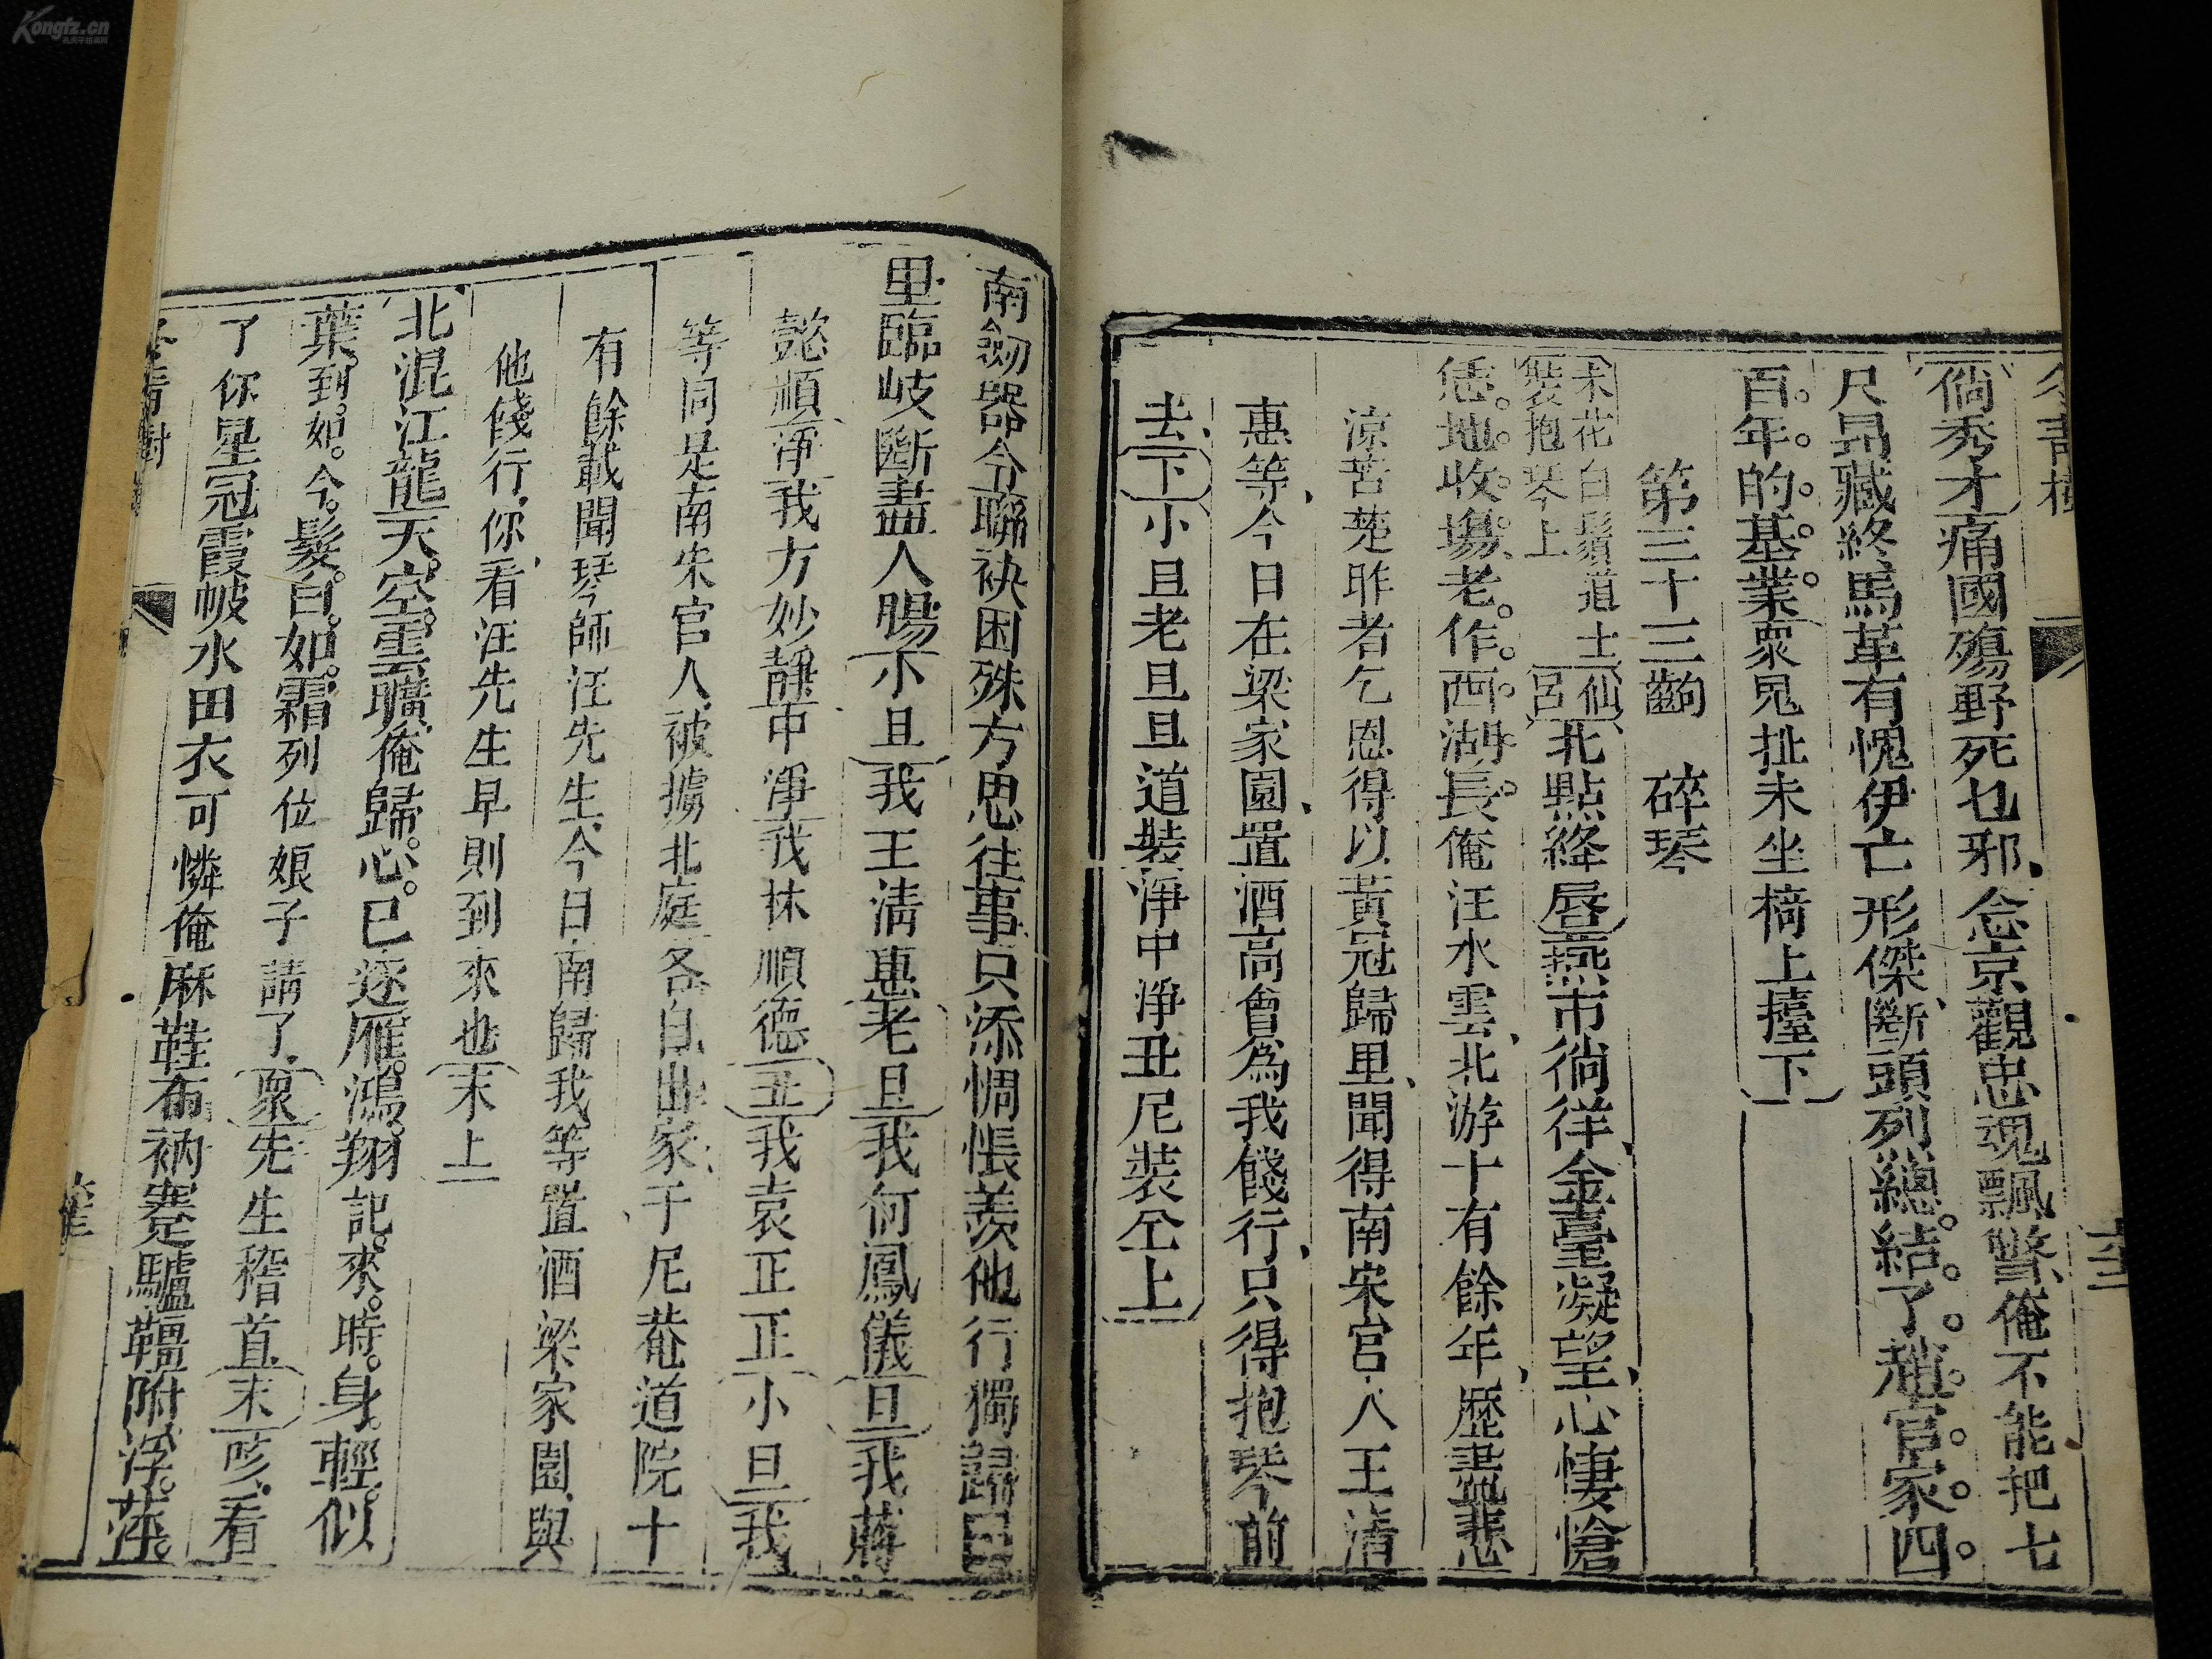 倘秀才痛國殤野死乜邪念京觀忠魂飄瞥俺不能把七
尺昂藏終馬革有愧伊亡形傑斷頭列總結了趙官家四
百年的基業衆鬼扯末坐椅上擡下
第三十三齣 碎琴
末花白鬚道士
裝抱琴上
仙
呂
北點絳唇燕市徜徉金臺凝望心悽愴
恁地收塲老作西湖長俺汪水雲北游十有餘年歷盡悲
涼苦楚昨者乞恩得以黃冠歸里聞得南宋宮人王清
惠等今日在梁家園置酒高會為我餞行只得抱琴前
去下小旦老旦旦道裝淨中淨丑尼裝仝上
南劒器令聯袂困殊方思往事只添惆悵羨他行獨歸
里臨岐斷盡人腸小旦我王清惠老旦我何鳳儀旦我蔣
懿順淨我方妙靜中淨我林順德丑我袁正正小旦我
等同是南宋宮人被擄北庭各自出家于尼菴道院十
有餘載聞琴師汪先生今日南歸我等置酒梁家園與
他餞行你看汪先生早則到來也末上
北混江龍天空雲曠俺歸心已逐雁鴻翔記來時身輕似
葉到如今髮白如霜列位娘子請了衆先生稽首末咳看
了你星冠霞帔水田衣可憐俺麻鞋布衲蹇驢韁附浮萍
冬青樹
Kongfz.cn